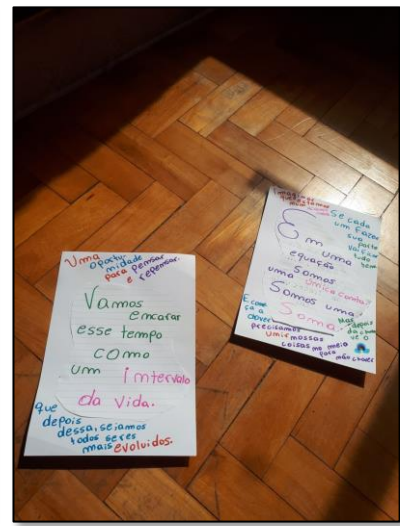 Uma
oportu-
nidade
para pensar
e repensar.
Vamos
encarar
esse tempo
como
um intervalo
da vida.
que
depois
dessa, sejamos
todos seres
mais evoluídos.
Se cada
um fazer
sua parte
vai ficar
tudo bem
Em uma
equação
somos
uma única conta?
Somos uma
Soma.
E como
se a
chover
precisamos
unir nossas
coisas
para
não chover
Mas depois
da chuva
vê o